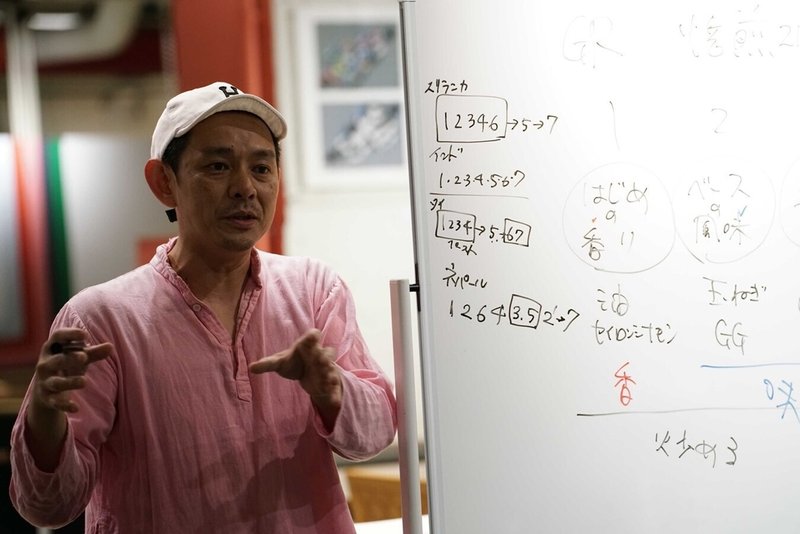 スリランカ
12346→5→7
インド
1.234.567
タイ
1234→5.→67
ネパール
1264 3.5 2→7
1
2
はじめ
の
香り
ベース
の
風味
油
セイロンシナモン
玉ねぎ
GG
香
味
火止める